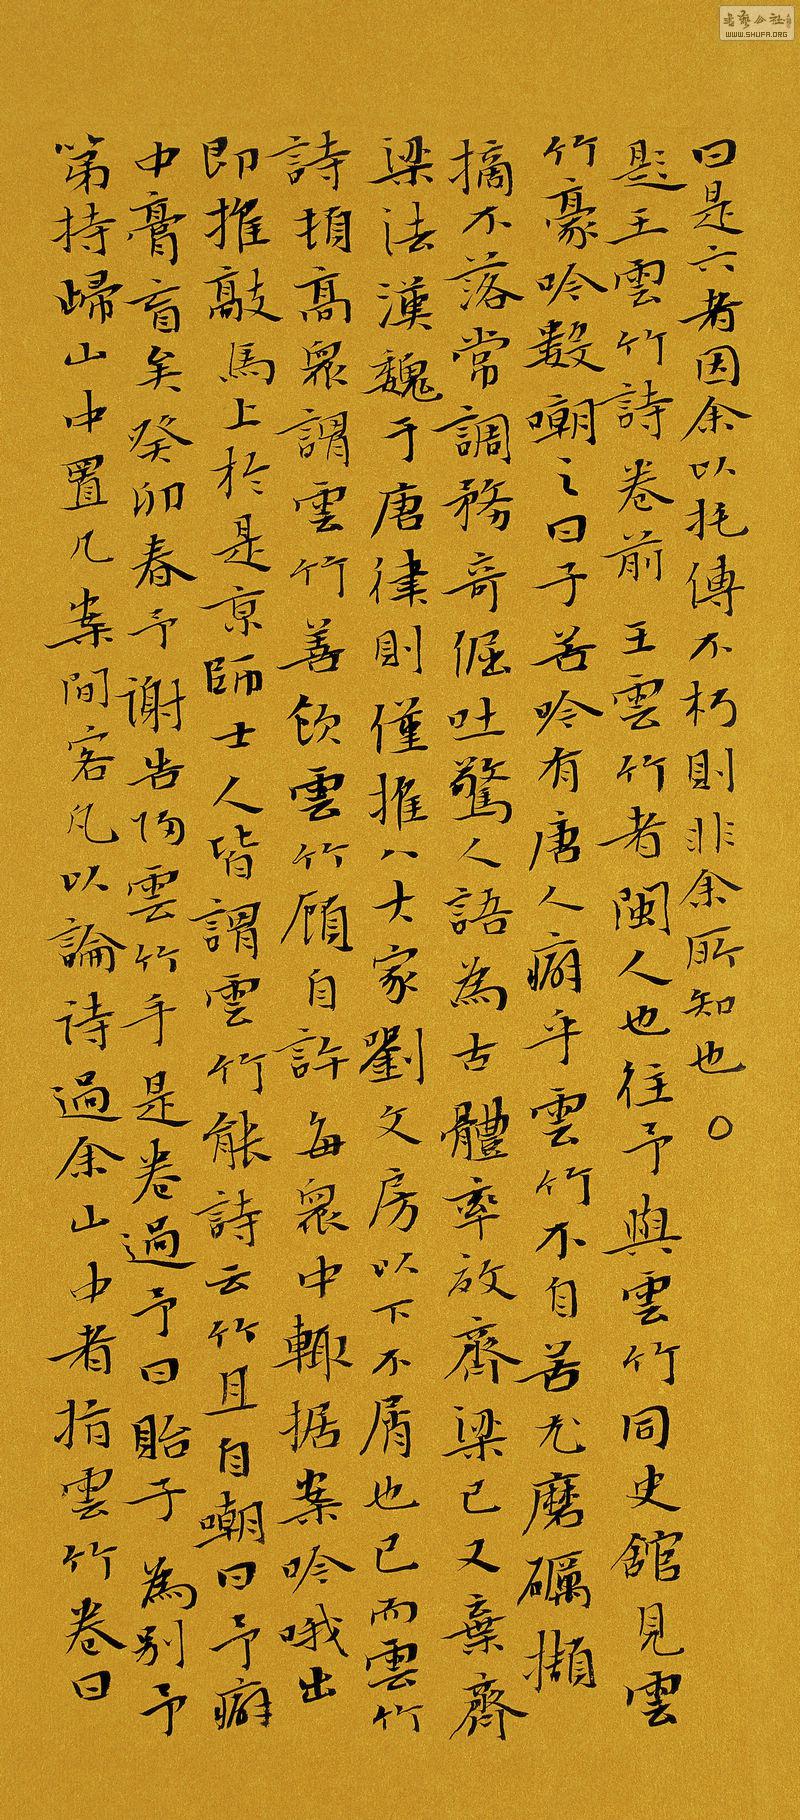 曰是六者因余以托傳不朽則非余所知也〇
題王雲竹詩卷前王雲竹者閩人也往予與雲竹同史館見雲
竹豪吟數嘲之曰子苦吟有唐人癖乎雲竹不自苦尤磨礪擷
摘不落常調務奇倔吐驚人語為古體率放齊梁已又棄齊
梁法漢魏于唐律則僅推八大家劉文房以下不屑也已而雲竹
詩頓高眾謂雲竹善飲雲竹顧自許每眾中輒据案吟哦出
即推敲馬上於是京師士人皆謂雲竹能詩云竹且自嘲曰予癖
中膏肓矣癸卯春予謝告歸雲竹手是卷過予曰貽子為別予
第持歸山中置几案間客凡以論詩過余山中者指雲竹卷曰
書藝公社
WWW.SHUFA.ORG